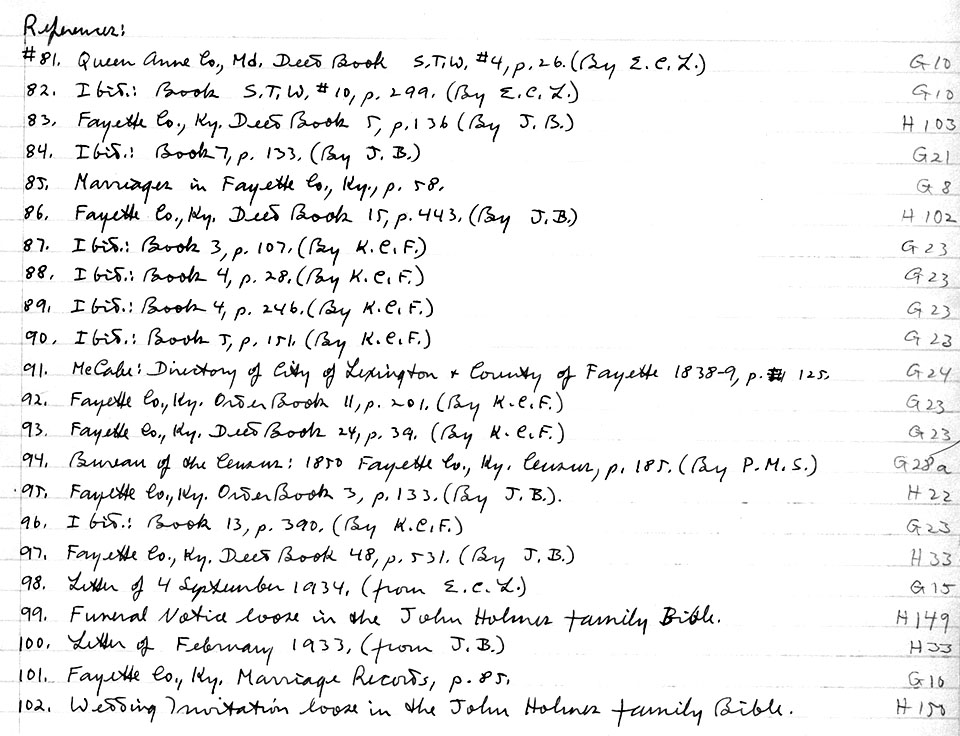 References:
#81. Queen Anne Co., Md. Deed Book S.T.W. #4, p. 26. (By E.C.L.) G10
82. Ibid.: Book S.T.W. #10, p. 299. (By E.C.L.) G10
83. Fayette Co., Ky. Deed Book 5, p. 136 (By J.B.) H103
84. Ibid.: Book 7, p. 133. (By J.B.) G21
85. Marriages in Fayette Co., Ky., p. 58. G8
86. Fayette Co., Ky. Deed Book 15, p. 443. (By J.B.) H102
87. Ibid.: Book 3, p. 107. (By K.C.F.) G23
88. Ibid.: Book 4, p. 28. (By K.C.F.) G23
89. Ibid.: Book 4, p. 246. (By K.C.F.) G23
90. Ibid.: Book 5, p. 151. (By K.C.F.) G23
91. McCabe: Directory of City of Lexington + County of Fayette 1838-9, p. 125. G24
92. Fayette Co., Ky. Order Book 11, p. 201. (By K.C.F.) G23
93. Fayette Co., Ky. Deed Book 24, p. 39. (By K.C.F.) G23
94. Bureau of the Census: 1850 Fayette Co., Ky. Census, p. 185. (By P.M.S.) G28a
95. Fayette Co., Ky. Order Book 3, p. 133. (By J.B.). H22
96. Ibid.: Book 13, p. 390. (By K.C.F.) G23
97. Fayette Co., Ky. Deed Book 48, p. 531. (By J.B.) H33
98. Letter of 4 September 1934. (from E.C.L.) G15
99. Funeral Notice loose in the John Holmes family Bible. H149
100. Letter of February 1933. (from J.B.) H33
101. Fayette Co., Ky. Marriage Records, p. 85. G10
102. Wedding Invitation loose in the John Holmes family Bible. H150